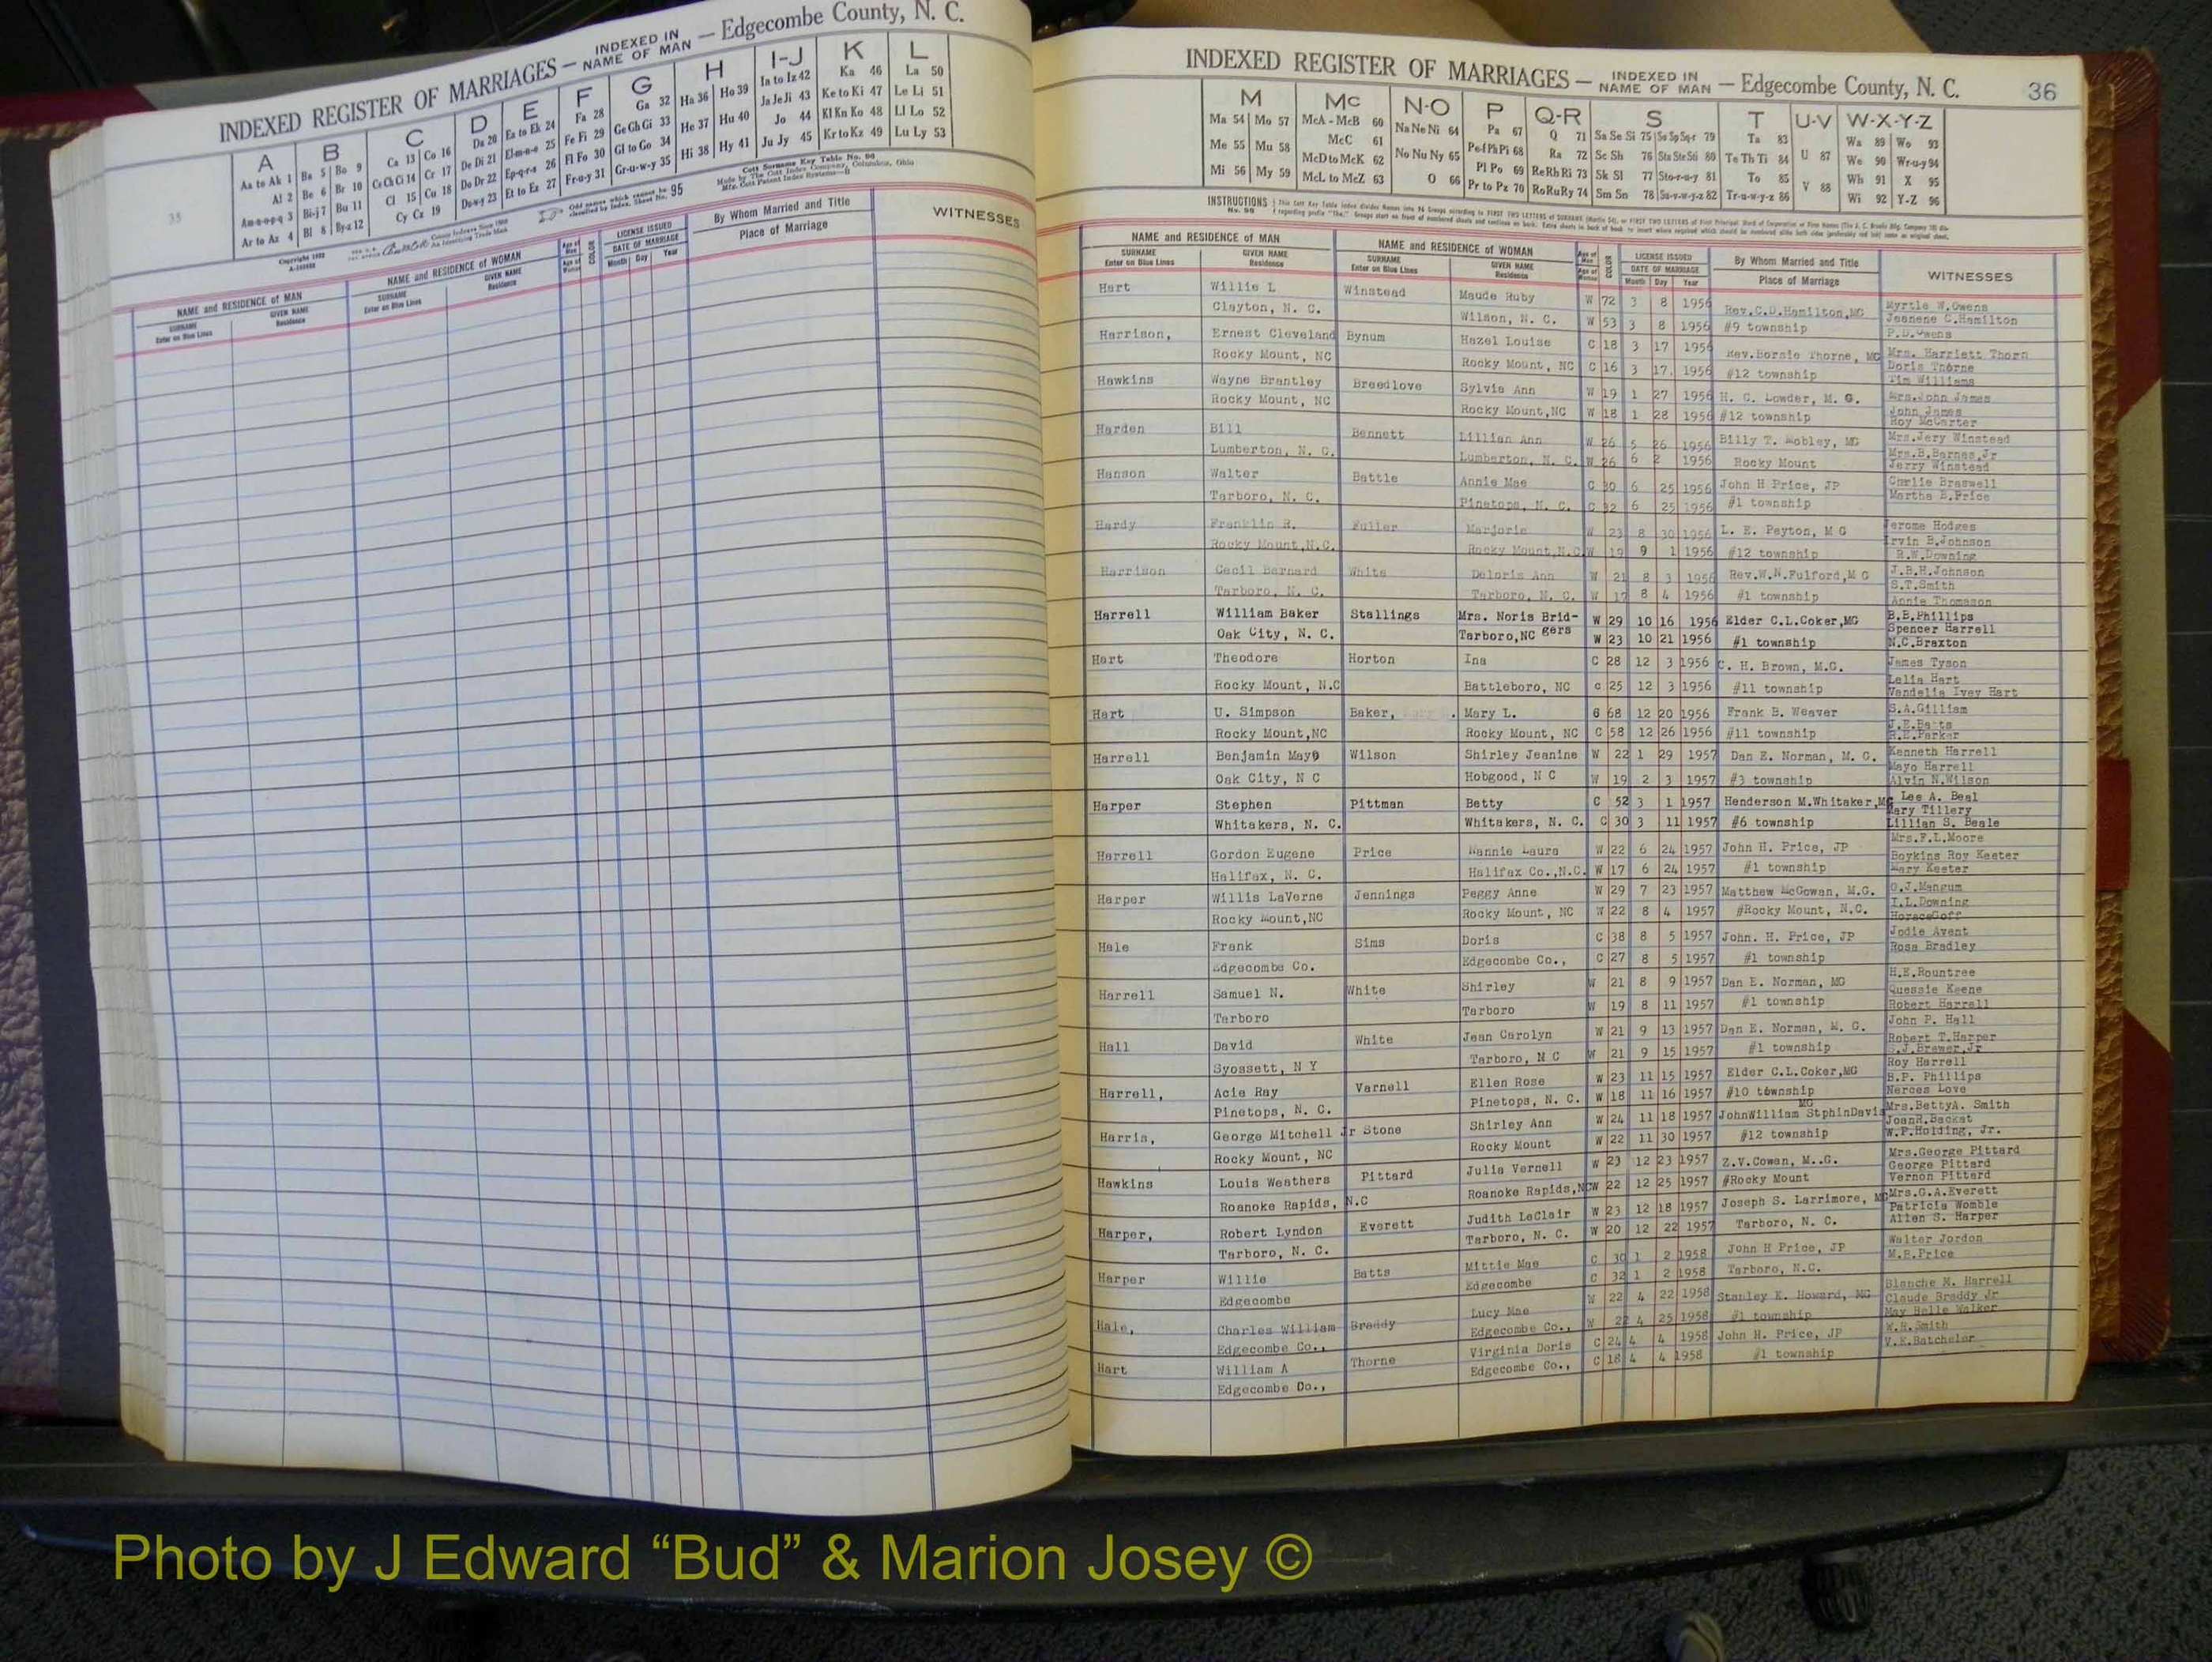 INDEXED REGISTER OF MARRIAGES — INDEXED IN NAME OF MAN — Edgecombe County, N. C.
35
A B C D E F G H I-J K L
Aa to Ak 1 Ba 5 Bo 9 Ca 13 Co 16 Da 20 Ea to Ek 24 Fa 28 Ga 32 Ha 36 Ho 39 Ia to Iz 42 Ka 46 La 50
Al 2 Be 6 Br 10 Ce Ch Ci 14 Cr 17 De Di 21 El-m-n-o 25 Fe Fi 29 Ge Gh Gi 33 He 37 Hu 40 Ja Je Ji 43 Ke to Ki 47 Le Li 51
Am-n-o-p-q 3 Bi-j 7 Bu 11 Cl 15 Cu 18 Do Dr 22 Ep-q-r-s 26 Fl Fo 30 Gl to Go 34 Hi 38 Hy 41 Jo 44 Kl Kn Ko 48 Ll Lo 52
Ar to Az 4 Bl 8 By-z 12 Cy Cz 19 Du-w-y 23 Et to Ez 27 Fr-u-y 31 Gr-u-w-y 35 Ju Jy 45 Kr to Kz 49 Lu Ly 53
NAME and RESIDENCE of MAN NAME and RESIDENCE of WOMAN COLOR LICENSE ISSUED By Whom Married and Title WITNESSES
SURNAME GIVEN NAME SURNAME GIVEN NAME DATE OF MARRIAGE Place of Marriage
Enter on Blue Lines Residence Enter on Blue Lines Residence Month Day Year
INDEXED REGISTER OF MARRIAGES — INDEXED IN NAME OF MAN — Edgecombe County, N. C. 36
M Mc N-O P Q-R S T U-V W-X-Y-Z
Ma 54 Mo 57 McA - McB 60 Na Ne Ni 64 Pa 67 Q 71 Sa Se Si 75 So Sp Sq-r 79 Ta 83 Wa 89 Wo 93
Me 55 Mu 58 McC 61 Pe-f Ph Pi 68 Ra 72 Sc Sh 76 Sta Ste Sti 80 Te Th Ti 84 U 87 We 90 Wr-u-y 94
McD to McK 62 No Nu Ny 65 Pl Po 69 Re Rh Ri 73 Sk Sl 77 Sto-r-u-y 81 To 85 Wh 91 X 95
Mi 56 My 59 McL to McZ 63 O 66 Pr to Pz 70 Ro Ru Ry 74 Sm Sn 78 Su-v-w-y-z 82 Tr-u-w-y-z 86 V 88 Wi 92 Y-Z 96
NAME and RESIDENCE of MAN NAME and RESIDENCE of WOMAN COLOR LICENSE ISSUED By Whom Married and Title WITNESSES
SURNAME GIVEN NAME SURNAME GIVEN NAME DATE OF MARRIAGE Place of Marriage
Enter on Blue Lines Residence Enter on Blue Lines Residence Month Day Year
Hart Willie L Winstead Maude Ruby W 72 3 8 1956 Rev.C.D.Hamilton,MG Myrtle W.Owens
Clayton, N. C. Wilson, N. C. W 53 3 8 1956 #9 township Jeanene C.Hamilton
P.D.Owens
Harrison, Ernest Cleveland Bynum Hazel Louise C 18 3 17 1956 Rev.Borsie Thorne, MG Mrs. Harriett Thorn
Rocky Mount, NC Rocky Mount, NC C 16 3 17. 1956 #12 township Doris Thorne
Tim Williams
Hawkins Wayne Brantley Breedlove Sylvia Ann W 19 1 27 1956 H. C. Lowder, M. G. Mrs.John James
Rocky Mount, NC Rocky Mount,NC W 18 1 28 1956 #12 township John James
Roy McCarter
Harden Bill Bennett Lillian Ann W 26 5 26 1956 Billy T. Mobley, MG Mrs.Jery Winstead
Lumberton, N. C. Lumberton, N. C. W 26 6 2 1956 Rocky Mount Mrs.B.Barnes,Jr
Jerry Winstead
Hanson Walter Battle Annie Mae C 30 6 25 1956 John H Price, JP Charlie Braswell
Tarboro, N. C. Pinetops, N. C. C 32 6 25 1956 #1 township Martha B.Price
Hardy Franklin R. Fuller Marjorie W 23 8 30 1956 L. E. Peyton, M G Jerome Hodges
Rocky Mount,N.C. Rocky Mount,N.C W 19 9 1 1956 #12 township Irvin B.Johnson
R.W.Downing
Harrison Cecil Bernard White Deloris Ann W 21 8 3 1956 Rev.W.N.Fulford,M G J.B.H.Johnson
Tarboro, N. C. Tarboro, N. C. W 17 8 4 1956 #1 township S.T.Smith
Annie Thomason
Harrell William Baker Stallings Mrs. Noris Brid- W 29 10 16 1956 Elder C.L.Coker,MG B.B.Phillips
Oak City, N. C. Tarboro,NC gers W 23 10 21 1956 #1 township Spencer Harrell
N.C.Braxton
Hart Theodore Horton Ina C 28 12 3 1956 C. H. Brown, M.G. James Tyson
Rocky Mount, N.C Battleboro, NC c 25 12 3 1956 #11 township Lelia Hart
Vandelia Ivey Hart
Hart U. Simpson Baker, Mary L. 6 68 12 20 1956 Frank B. Weaver S.A.Gilliam
Rocky Mount,NC Rocky Mount, NC C 58 12 26 1956 #11 township J.E.Batts
R.E.Parker
Harrell Benjamin Mayo Wilson Shirley Jeanine W 22 1 29 1957 Dan E. Norman, M. G. Kenneth Harrell
Oak City, N C Hobgood, N C W 19 2 3 1957 #3 township Mayo Harrell
Alvin N.Wilson
Harper Stephen Pittman Betty C 52 3 1 1957 Henderson M.Whitaker,MG Lee A. Beal
Whitakers, N. C. Whitakers, N. C. C 30 3 11 1957 #6 township Mary Tillery
Lillian S. Beale
Harrell Gordon Eugene Price Nannie Laura W 22 6 24 1957 John H. Price, JP Mrs.F.L.Moore
Halifax, N. C. Halifax Co.,N.C. W 17 6 24 1957 #1 township Boykins Roy Keeter
Mary Keeter
Harper Willis LaVerne Jennings Peggy Anne W 29 7 23 1957 Matthew McGowan, M.G. O.J.Mangum
Rocky Mount,NC Rocky Mount, NC W 22 8 4 1957 #Rocky Mount, N.C. I.L.Downing
HoraceGoff
Hale Frank Sims Doris C 38 8 5 1957 John. H. Price, JP Jodie Avent
Edgecombe Co. Edgecombe Co., C 27 8 5 1957 #1 township Rosa Bradley
Harrell Samuel N. White Shirley W 21 8 9 1957 Dan E. Norman, MG H.E.Rountree
Tarboro Tarboro W 19 8 11 1957 #1 township Quessie Keene
Robert Harrell
Hall David White Jean Carolyn W 21 9 13 1957 Dan E. Norman, M. G. John P. Hall
Syossett, N Y Tarboro, N C W 21 9 15 1957 #1 township Robert T.Harper
S.J.Brewer,Jr
Harrell, Acie Ray Varnell Ellen Rose W 23 11 15 1957 Elder C.L.Coker,MG Roy Harrell
Pinetops, N. C. Pinetops, N. C. W 18 11 16 1957 #10 township B.P. Phillips
Nerces Love
Harris, George Mitchell Jr Stone Shirley Ann W 24 11 18 1957 JohnWilliam StphinDavis MG Mrs.BettyA. Smith
Rocky Mount, NC Rocky Mount W 22 11 30 1957 #12 township JoanR.Backat
W.P.Holding, Jr.
Hawkins Louis Weathers Pittard Julia Vernell W 23 12 23 1957 Z.V.Cowan, M..G. Mrs.George Pittard
Roanoke Rapids, N.C Roanoke Rapids,NC W 22 12 25 1957 #Rocky Mount George Pittard
Vernon Pittard
Harper, Robert Lyndon Everett Judith LeClair W 23 12 18 1957 Joseph S. Larrimore, MG Mrs.G.A.Everett
Tarboro, N. C. Tarboro, N. C. W 20 12 22 1957 Tarboro, N. C. Patricia Womble
Allen S. Harper
Harper Willie Batts Mittie Mae C 30 1 2 1958 John H Price, JP Walter Jordon
Edgecombe Edgecombe C 32 1 2 1958 Tarboro, N.C. M.B.Price
Hale, Charles William Braddy Lucy Mae W 22 4 22 1958 Stanley K. Howard, MG Blanche M. Harrell
Edgecombe Co., Edgecombe Co., W 22 4 25 1958 #1 township Claude Braddy Jr
May Belle Walker
Hart William A Thorne Virginia Doris C 24 4 4 1958 John H. Price, JP W.R.Smith
Edgecombe Do., Edgecombe Co., C 18 4 4 1958 #1 township V.E.Batchelor
Photo by J Edward “Bud” & Marion Josey ©